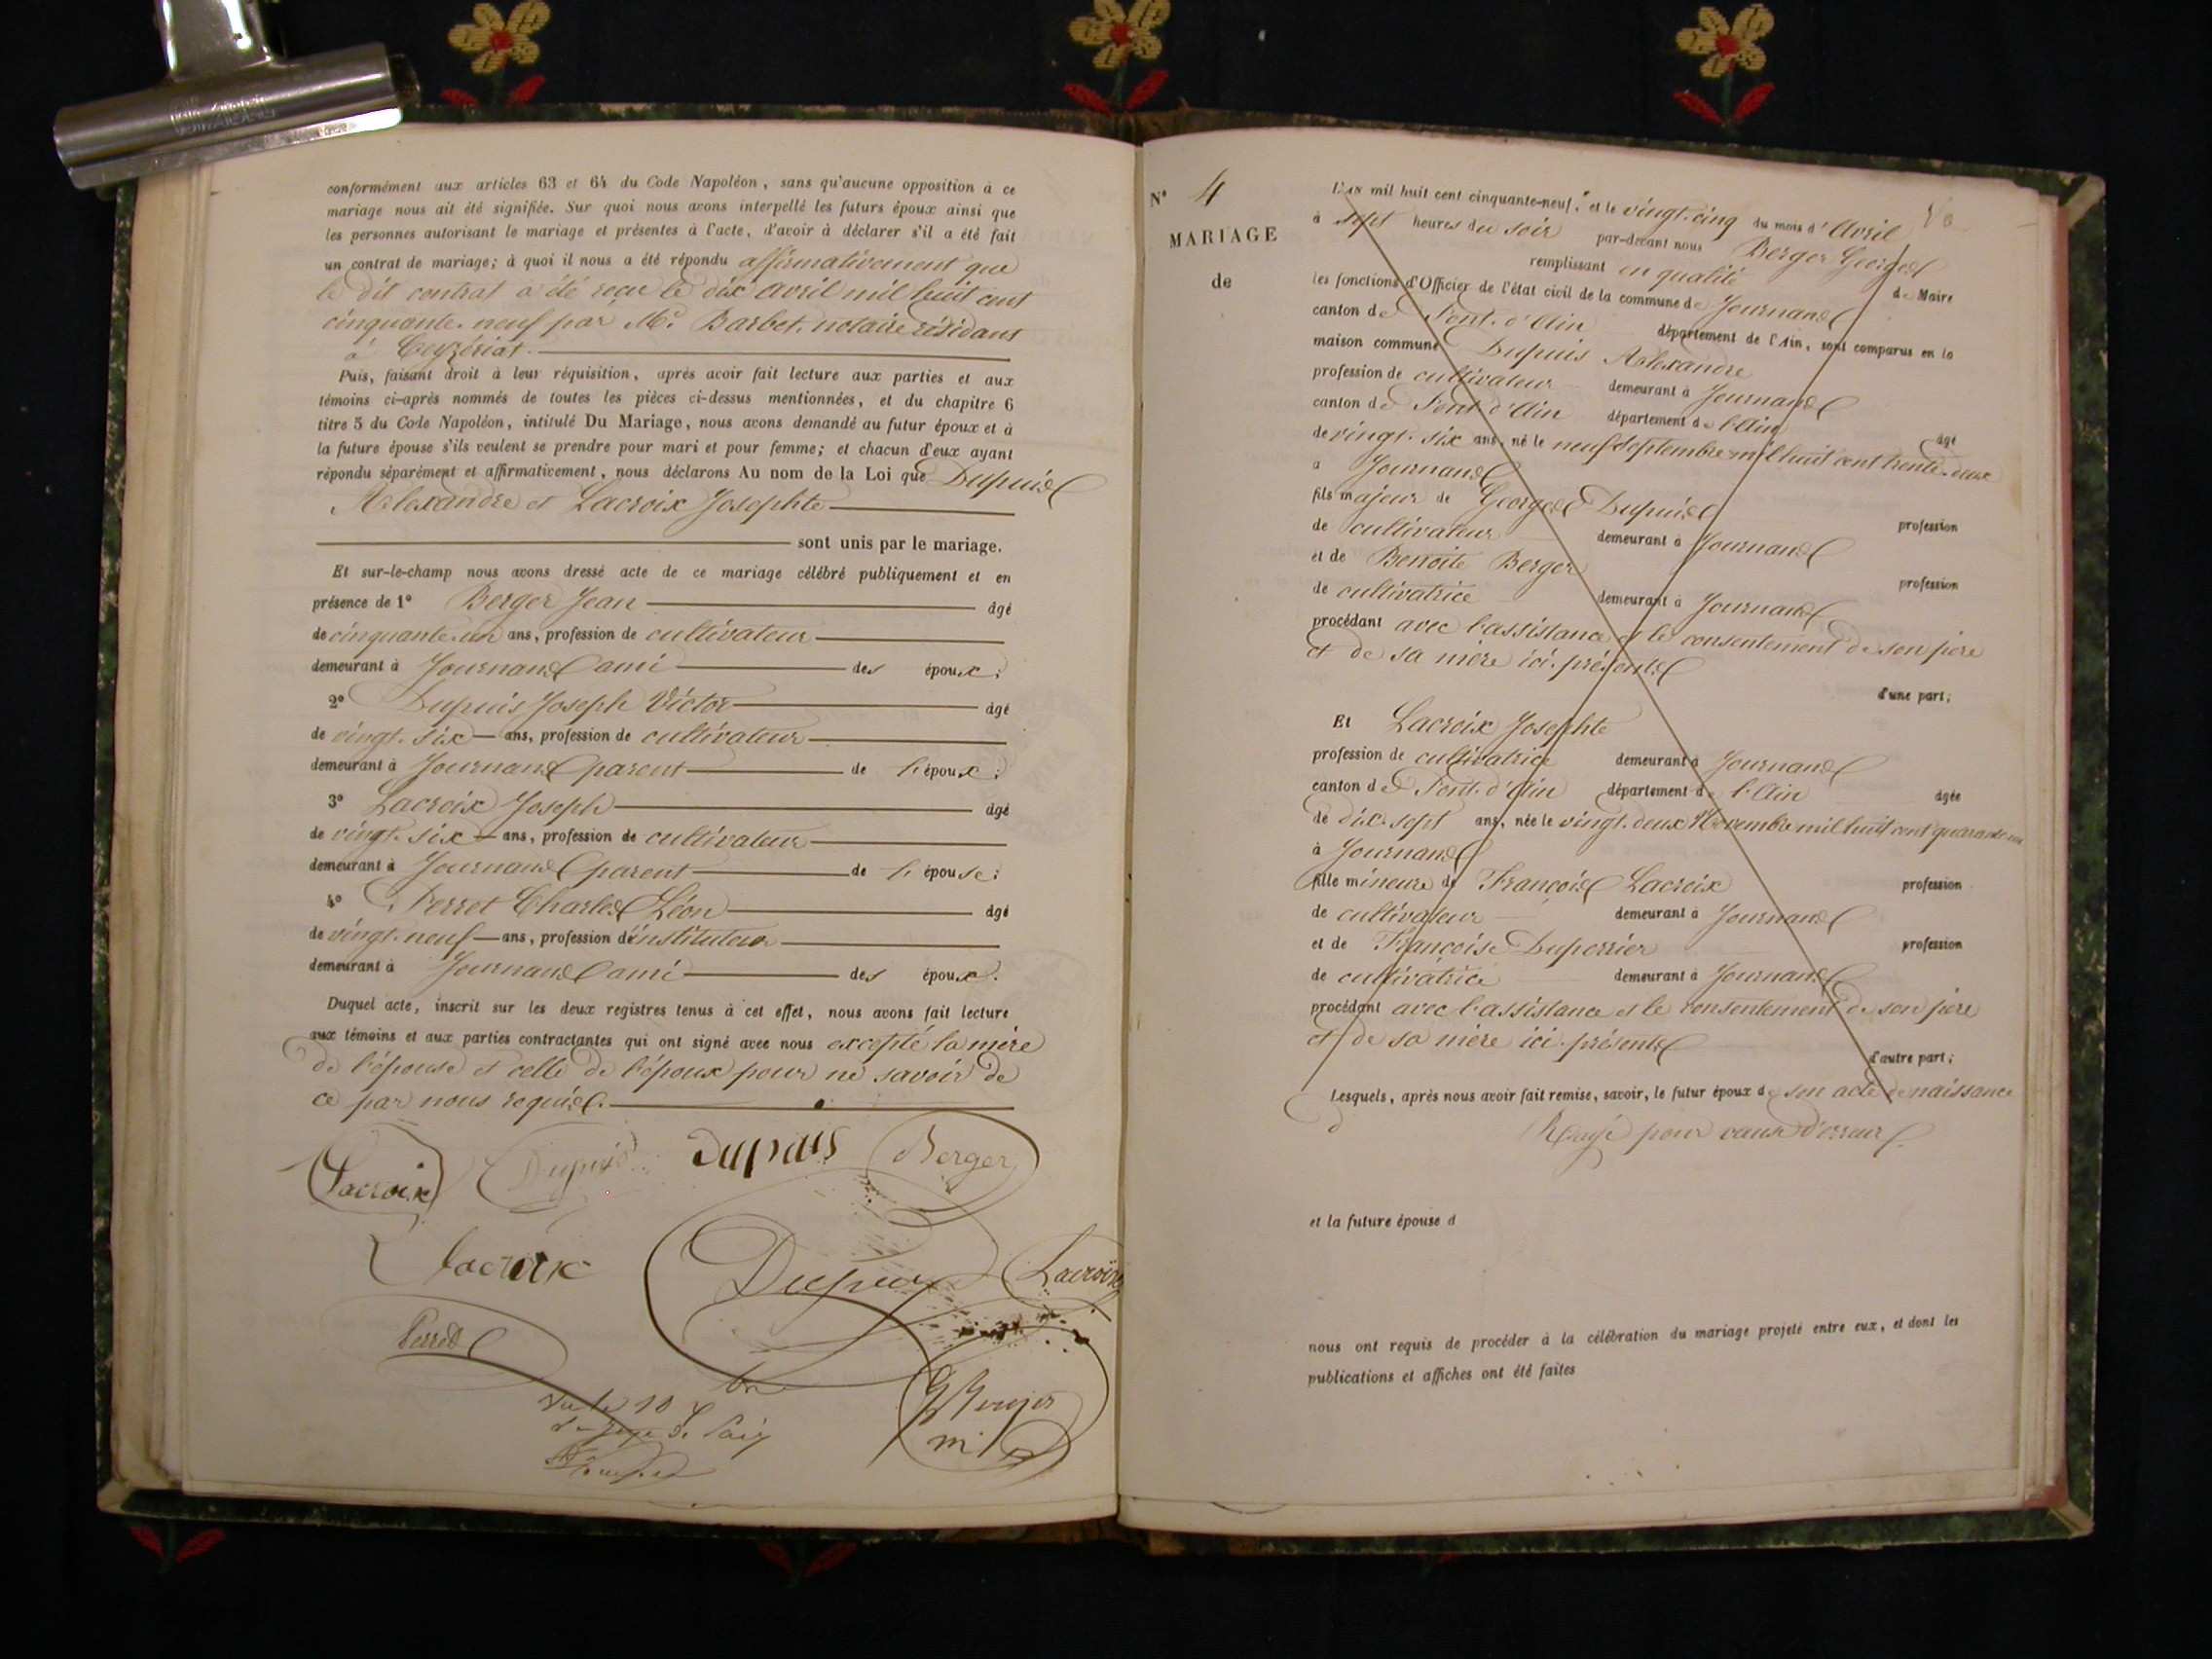 conformément aux articles 63 et 64 du Code Napoléon, sans qu'aucune opposition à ce
mariage nous ait été signifiée. Sur quoi nous avons interpellé les futurs époux ainsi que
les personnes autorisant le mariage et présentes à l'acte, d'avoir à déclarer s'il a été fait
un contrat de mariage; à quoi il nous a été répondu affirmativement que
le dit contrat a été reçu le dix avril mil huit cent
cinquante-neuf par Me. Barbet, notaire résidant
à Ceyzériat.
Puis, faisant droit à leur réquisition, après avoir fait lecture aux parties et aux
témoins ci-après nommés de toutes les pièces ci-dessus mentionnées, et du chapitre 6
titre 5 du Code Napoléon, intitulé Du Mariage, nous avons demandé au futur époux et à
la future épouse s'ils veulent se prendre pour mari et pour femme; et chacun d'eux ayant
répondu séparément et affirmativement, nous déclarons Au nom de la Loi que Dupuis
Alexandre et Lacroix Josephte
sont unis par le mariage.
Et sur-le-champ nous avons dressé acte de ce mariage célébré publiquement et en
présence de 1° Berger Jean âgé
de cinquante-un ans, profession de cultivateur
demeurant à Journans ami des époux;
2° Dupuis Joseph Victor âgé
de vingt-six ans, profession de cultivateur
demeurant à Journans parent de l'époux;
3° Lacroix Joseph âgé
de vingt-six ans, profession de cultivateur
demeurant à Journans parent de l'épouse;
4° Perret Charles Léon âgé
de vingt-neuf ans, profession d'instituteur
demeurant à Journans ami des époux.
Duquel acte, inscrit sur les deux registres tenus à cet effet, nous avons fait lecture
aux témoins et aux parties contractantes qui ont signé avec nous excepté la mère
de l'épouse et celle de l'époux pour ne savoir de
ce par nous requis.
Lacroix Dupuis Dupuis Berger
Lacroix Dupuis Lacroix
Perret
Berger
N° 4
MARIAGE
de
L'AN mil huit cent cinquante-neuf, et le vingt-cinq du mois d'Avril
à sept heures du soir par-devant nous Berger Georges
remplissant en qualité de Maire
les fonctions d'Officier de l'état civil de la commune de Journans
canton de Pont-d'Ain département de l'Ain, sont comparus en la
maison commune Dupuis Alexandre
profession de cultivateur demeurant à Journans
canton de Pont d'Ain département de l'Ain âgé
de vingt-six ans, né le neuf Septembre mil huit cent trente-deux
à Journans
fils majeur de Georges Dupuis profession
de cultivateur demeurant à Journans
et de Benoite Berger profession
de cultivatrice demeurant à Journans
procédant avec l'assistance et le consentement de son père
et de sa mère ici présents
d'une part;
Et Lacroix Josephte
profession de cultivatrice demeurant à Journans
canton de Pont-d'Ain département de l'Ain âgée
de dix-sept ans, née le vingt-deux Novembre mil huit cent quarante-un
à Journans
fille mineure de François Lacroix profession
de cultivateur demeurant à Journans
et de Françoise Duperrier profession
de cultivatrice demeurant à Journans
procédant avec l'assistance et le consentement de son père
et de sa mère ici présents
d'autre part;
Lesquels, après nous avoir fait remise, savoir, le futur époux de son acte de naissance
Rayé pour cause d'erreur.
et la future épouse d
nous ont requis de procéder à la célébration du mariage projeté entre eux, et dont les
publications et affiches ont été faites